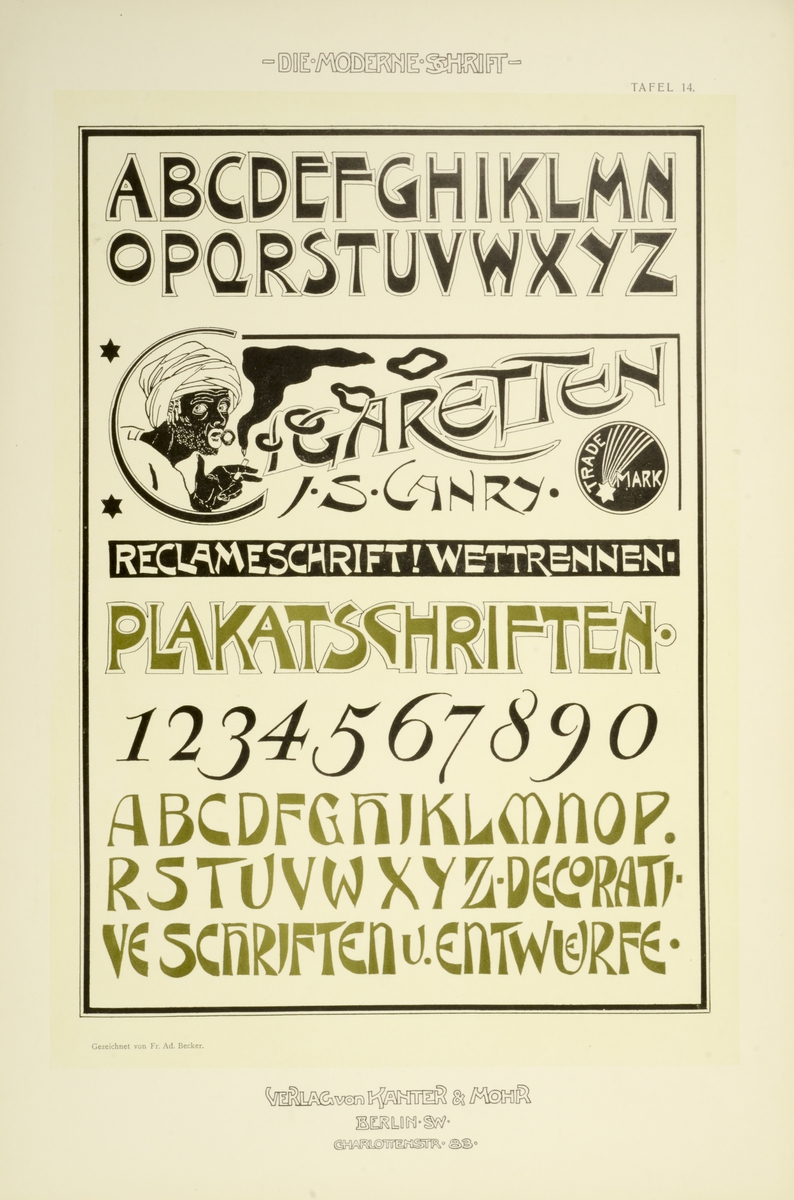 -DIE·MODERNE·SCHRIFT-
TAFEL 14.
ABCDEFGHIKLMN
OPQRSTUVWXYZ
CIGARETTEN
J·S·CANRY·
TRADE MARK
RECLAMESCHRIFT! WETTRENNEN·
PLAKATSCHRIFTEN·
1234567890
ABCDFGHJKLMNOP.
RSTUVWXYZ·DECORATI·
VE SCHRIFTEN U. ENTWUERFE·
Gezeichnet von Fr. Ad. Becker.
VERLAG von KANTER & MOHR
BERLIN·SW·
CHARLOTTENSTR· 83·